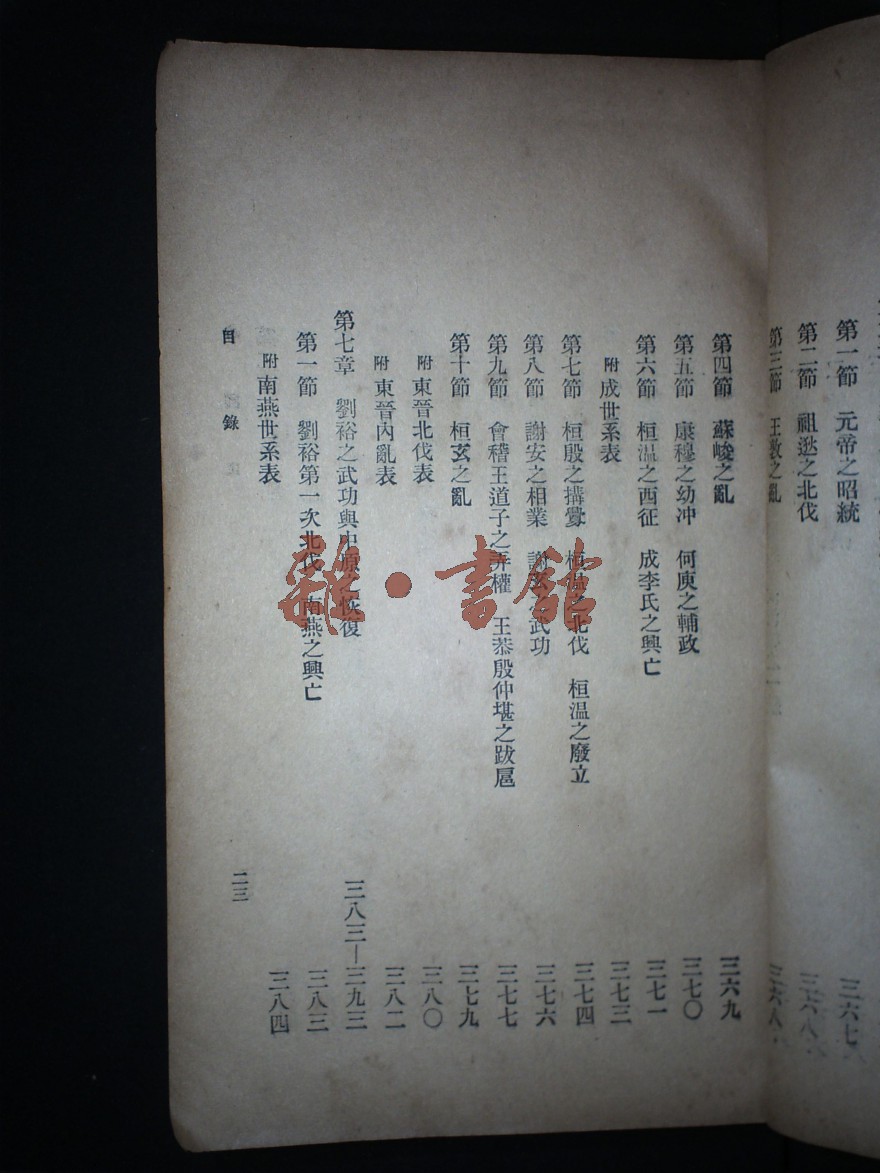 第一節　元帝之昭統　三六七
第二節　祖逖之北伐　三六八
第三節　王敦之亂　三六八
第四節　蘇峻之亂　三六九
第五節　康穆之幼冲　何庾之輔政　三七〇
第六節　桓温之西征　成李氏之興亡　三七一
附　成世系表　三七三
第七節　桓殷之搆釁　桓温之北伐　桓温之廢立　三七四
第八節　謝安之相業　謝玄之武功　三七六
第九節　會稽王道子之弄權　王恭殷仲堪之跋扈　三七七
第十節　桓玄之亂　三七九
附　東晉北伐表　三八〇
附　東晉內亂表　三八二
第七章　劉裕之武功與中原之恢復　三八三—三九三
第一節　劉裕第一次北伐　南燕之興亡　三八三
附　南燕世系表　三八四
目　錄　二三
雜·書館